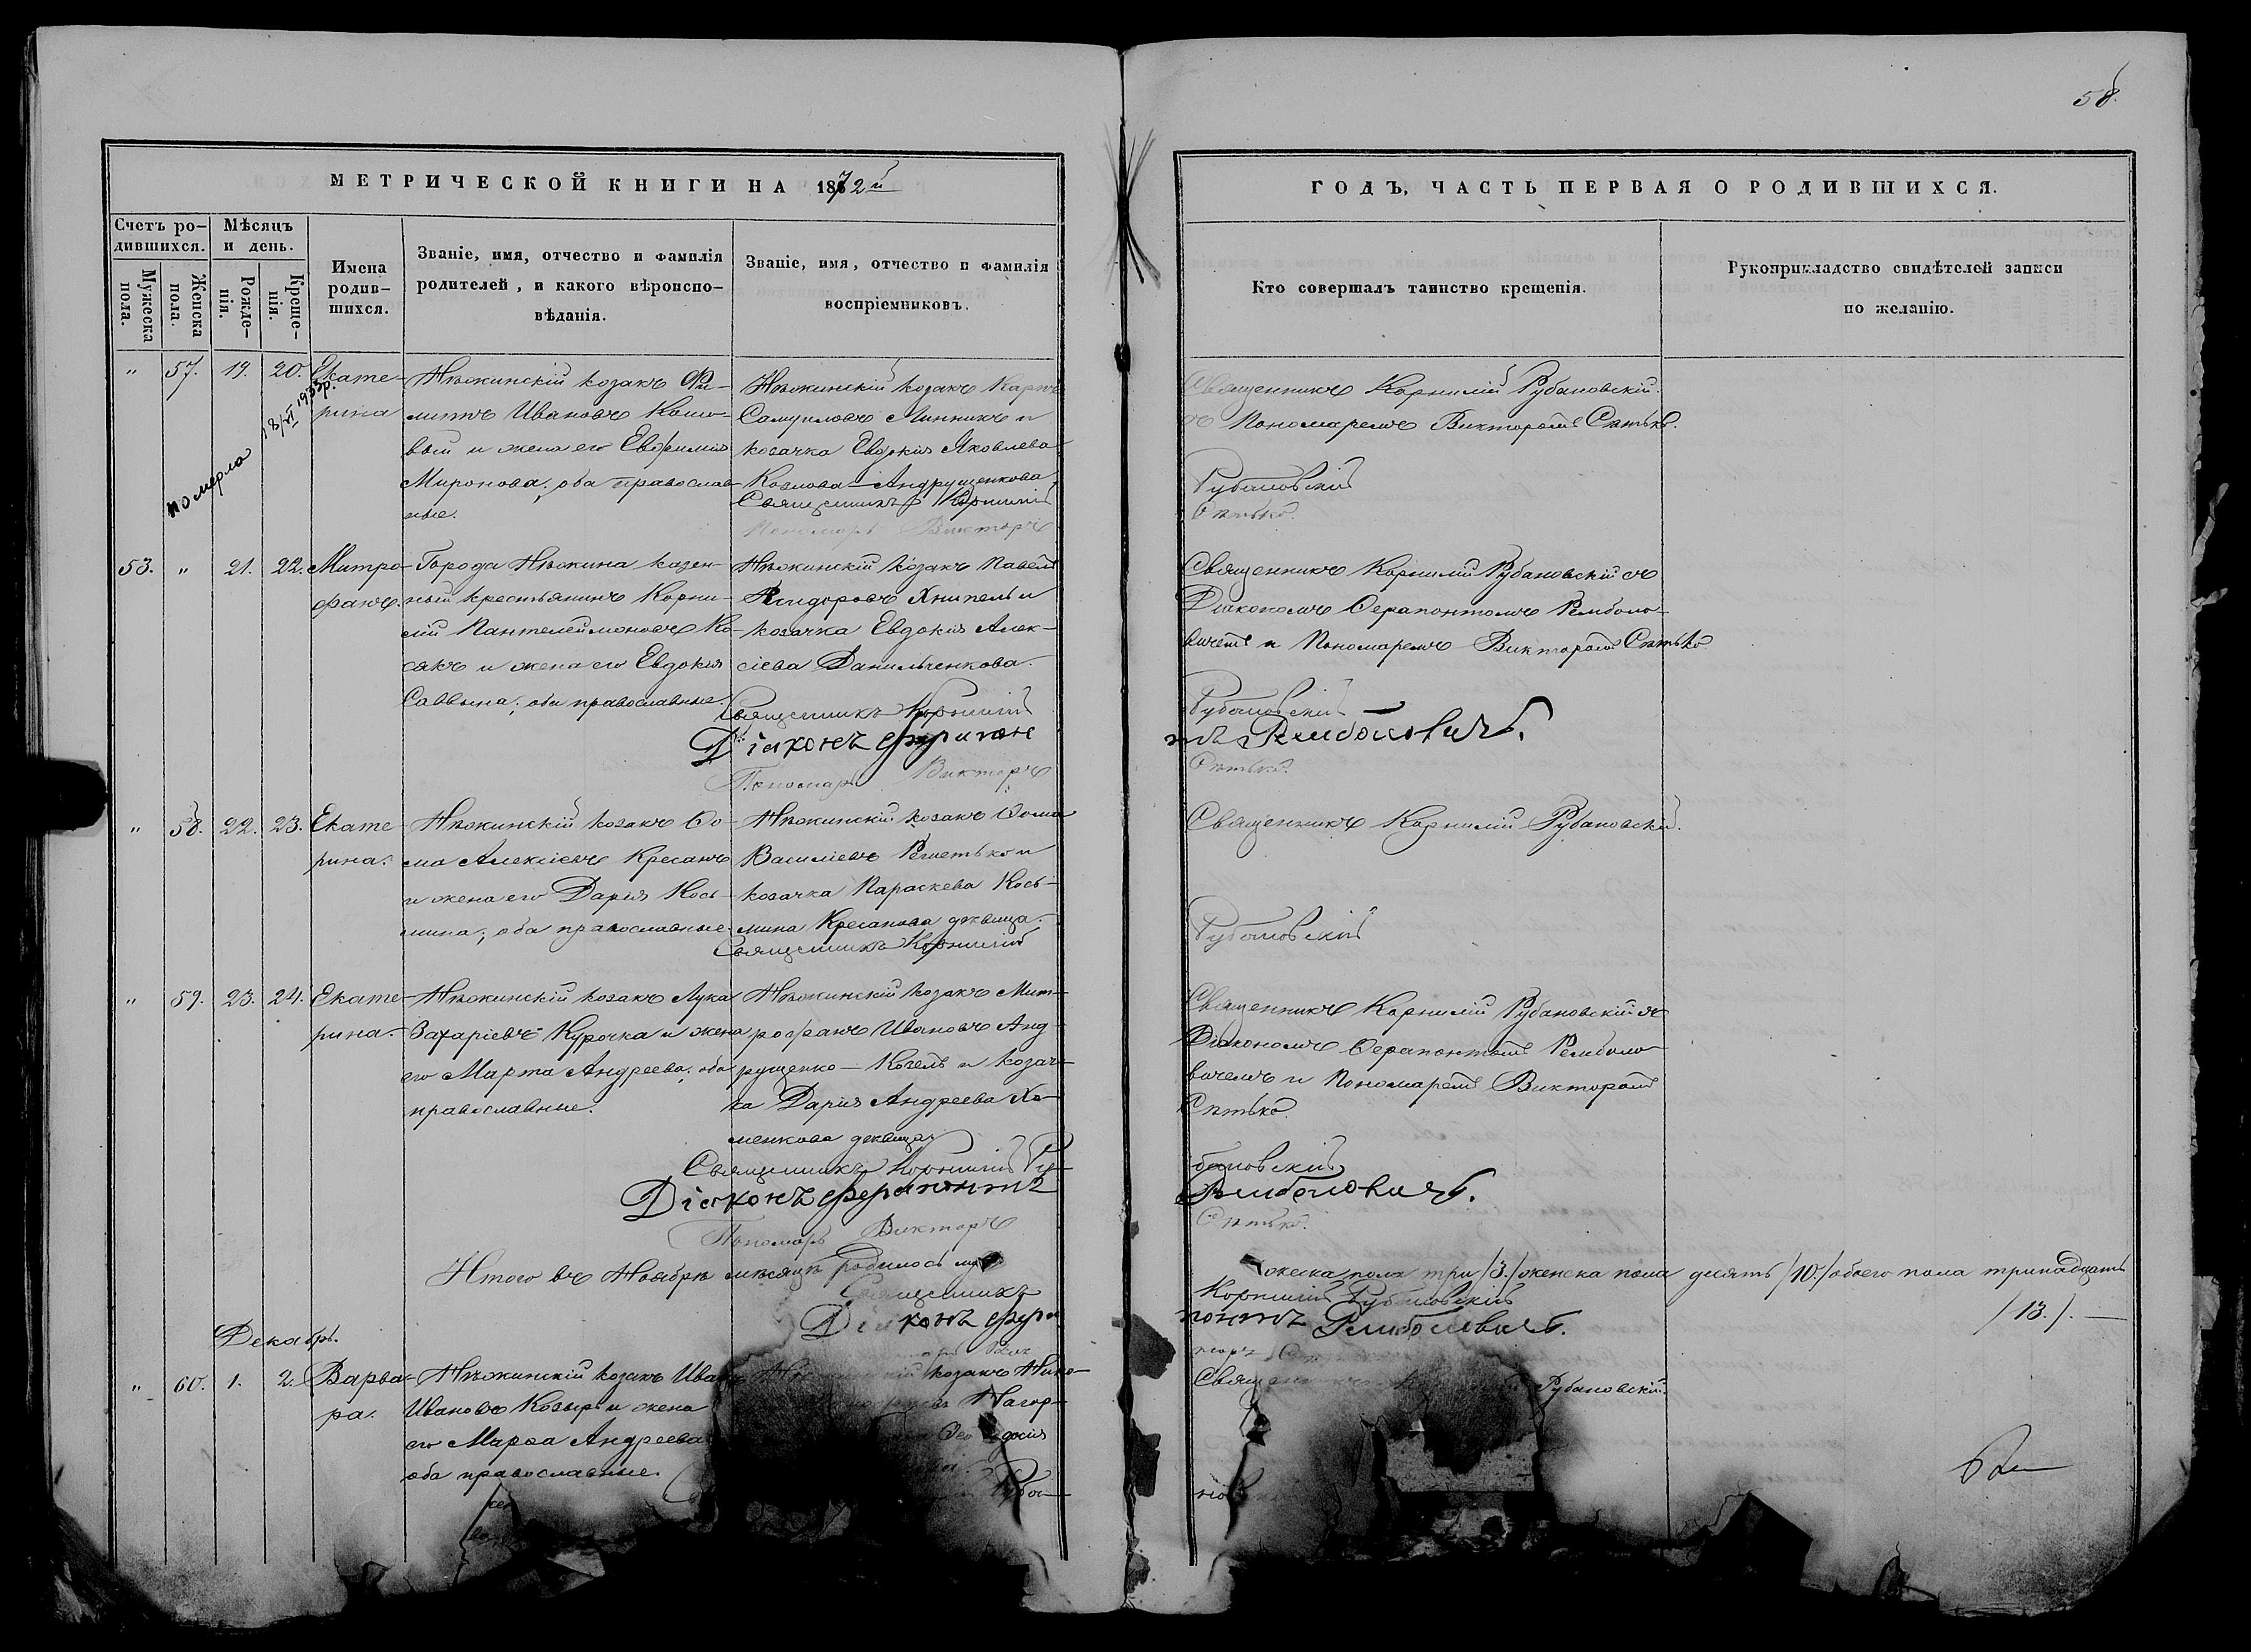 58.
МЕТРИЧЕСКОЙ КНИГИ НА 1872й
ГОДЪ, ЧАСТЬ ПЕРВАЯ О РОДИВШИХСЯ.
Счетъ ро-
дившихся.
Мужеска
пола.
Женска
пола.
Мѣсяцъ
и день.
Рожде-
нія.
Креще-
нія.
Имена
родив-
шихся.
Званіе, имя, отчество и фамилія
родителей, и какого вѣроиспо-
вѣданія.
Званіе, имя, отчество и фамилія
воспріемниковъ.
Кто совершалъ таинство крещенія.
Рукоприкладство свидѣтелей записи
по желанію.
" 57. 19. 20. Екате-
рина
померла 18/VI 1933р.
Нѣжинскій козакъ Фи-
липпъ Ивановъ
и жена его Евфимія
Миронова; оба православ-
ные.
Нѣжинскій козакъ Карпъ
Самуиловъ Линникъ и
козачка Евдокія Яковлева
Козлова-Андрущенкова
Священникъ Корнилій
Пономарь Викторъ
Священникъ Корнилій Рубановскій
съ Пономаремъ Викторомъ Сѣтько.
Рубановскій
Сѣтько.
53. " 21. 22. Митро-
фанъ.
Города Нѣжина казен-
ный крестьянинъ Корни-
лій Пантелеймоновъ Ко-
сякъ и жена его Евдокія
Саввина; оба православные.
Нѣжинскій козакъ Павелъ
Исидоровъ Книпель и
козачка Евдокія Алек-
сіева Данильченкова.
Священникъ Корнилій
Діаконъ Ферапон
Пономарь Викторъ
Священникъ Корнилій Рубановскій съ
Діакономъ Ѳерапонтомъ Ремболо-
вичемъ и Пономаремъ Викторомъ Сѣтько
Рубановскій
тъ Ремболовичъ.
Сѣтько.
" 58. 22. 23. Екате-
рина.
Нѣжинскій козакъ Ѳо-
ма Алексіевъ Кресанъ
и жена его Дарія Кось-
мина; оба православные.
Нѣжинскій козакъ Ѳома
Василіевъ Решетько и
козачка Параскева Кось-
мина Кресанова дѣвица.
Священникъ Корнилій
Священникъ Корнилій Рубановскій.
Рубановскій
" 59. 23. 24. Екате-
рина.
Нѣжинскій козакъ Лука
Захаріевъ Курочка и жена
его Марта Андреева; оба
православные.
Нѣжинскій козакъ Мит-
рофанъ Ивановъ Анд-
рущенко- и козач-
ка Дарія Андреева Хо-
менкова дѣвица
Священникъ Корнилій Ру-
Діаконъ Ферапонтъ
Пономарь Викторъ
Священникъ Корнилій Рубановскій съ
Діакономъ Ѳерапонтомъ Ремболо-
вичемъ и Пономаремъ Викторомъ
Сѣтько.
бановскій
Ремболовичъ.
Сѣтько.
Итого въ Ноябрѣ мѣсяцѣ родилось му-
жеска пола три /3./ женска пола десять /10./ обоего пола тринадцать
/13./.
Священникъ
Корнилій Рубановскій
Діаконъ Фера
понтъ Ремболовичъ.
Декабрь.
" 60. 1. 2. Варва-
ра.
Нѣжинскій козакъ Иванъ
Ивановъ Козырь и жена
его Марѳа Андреева
оба православные.
козакъ Нико-
Нагор-
Рубановскій.
Рубановскій.